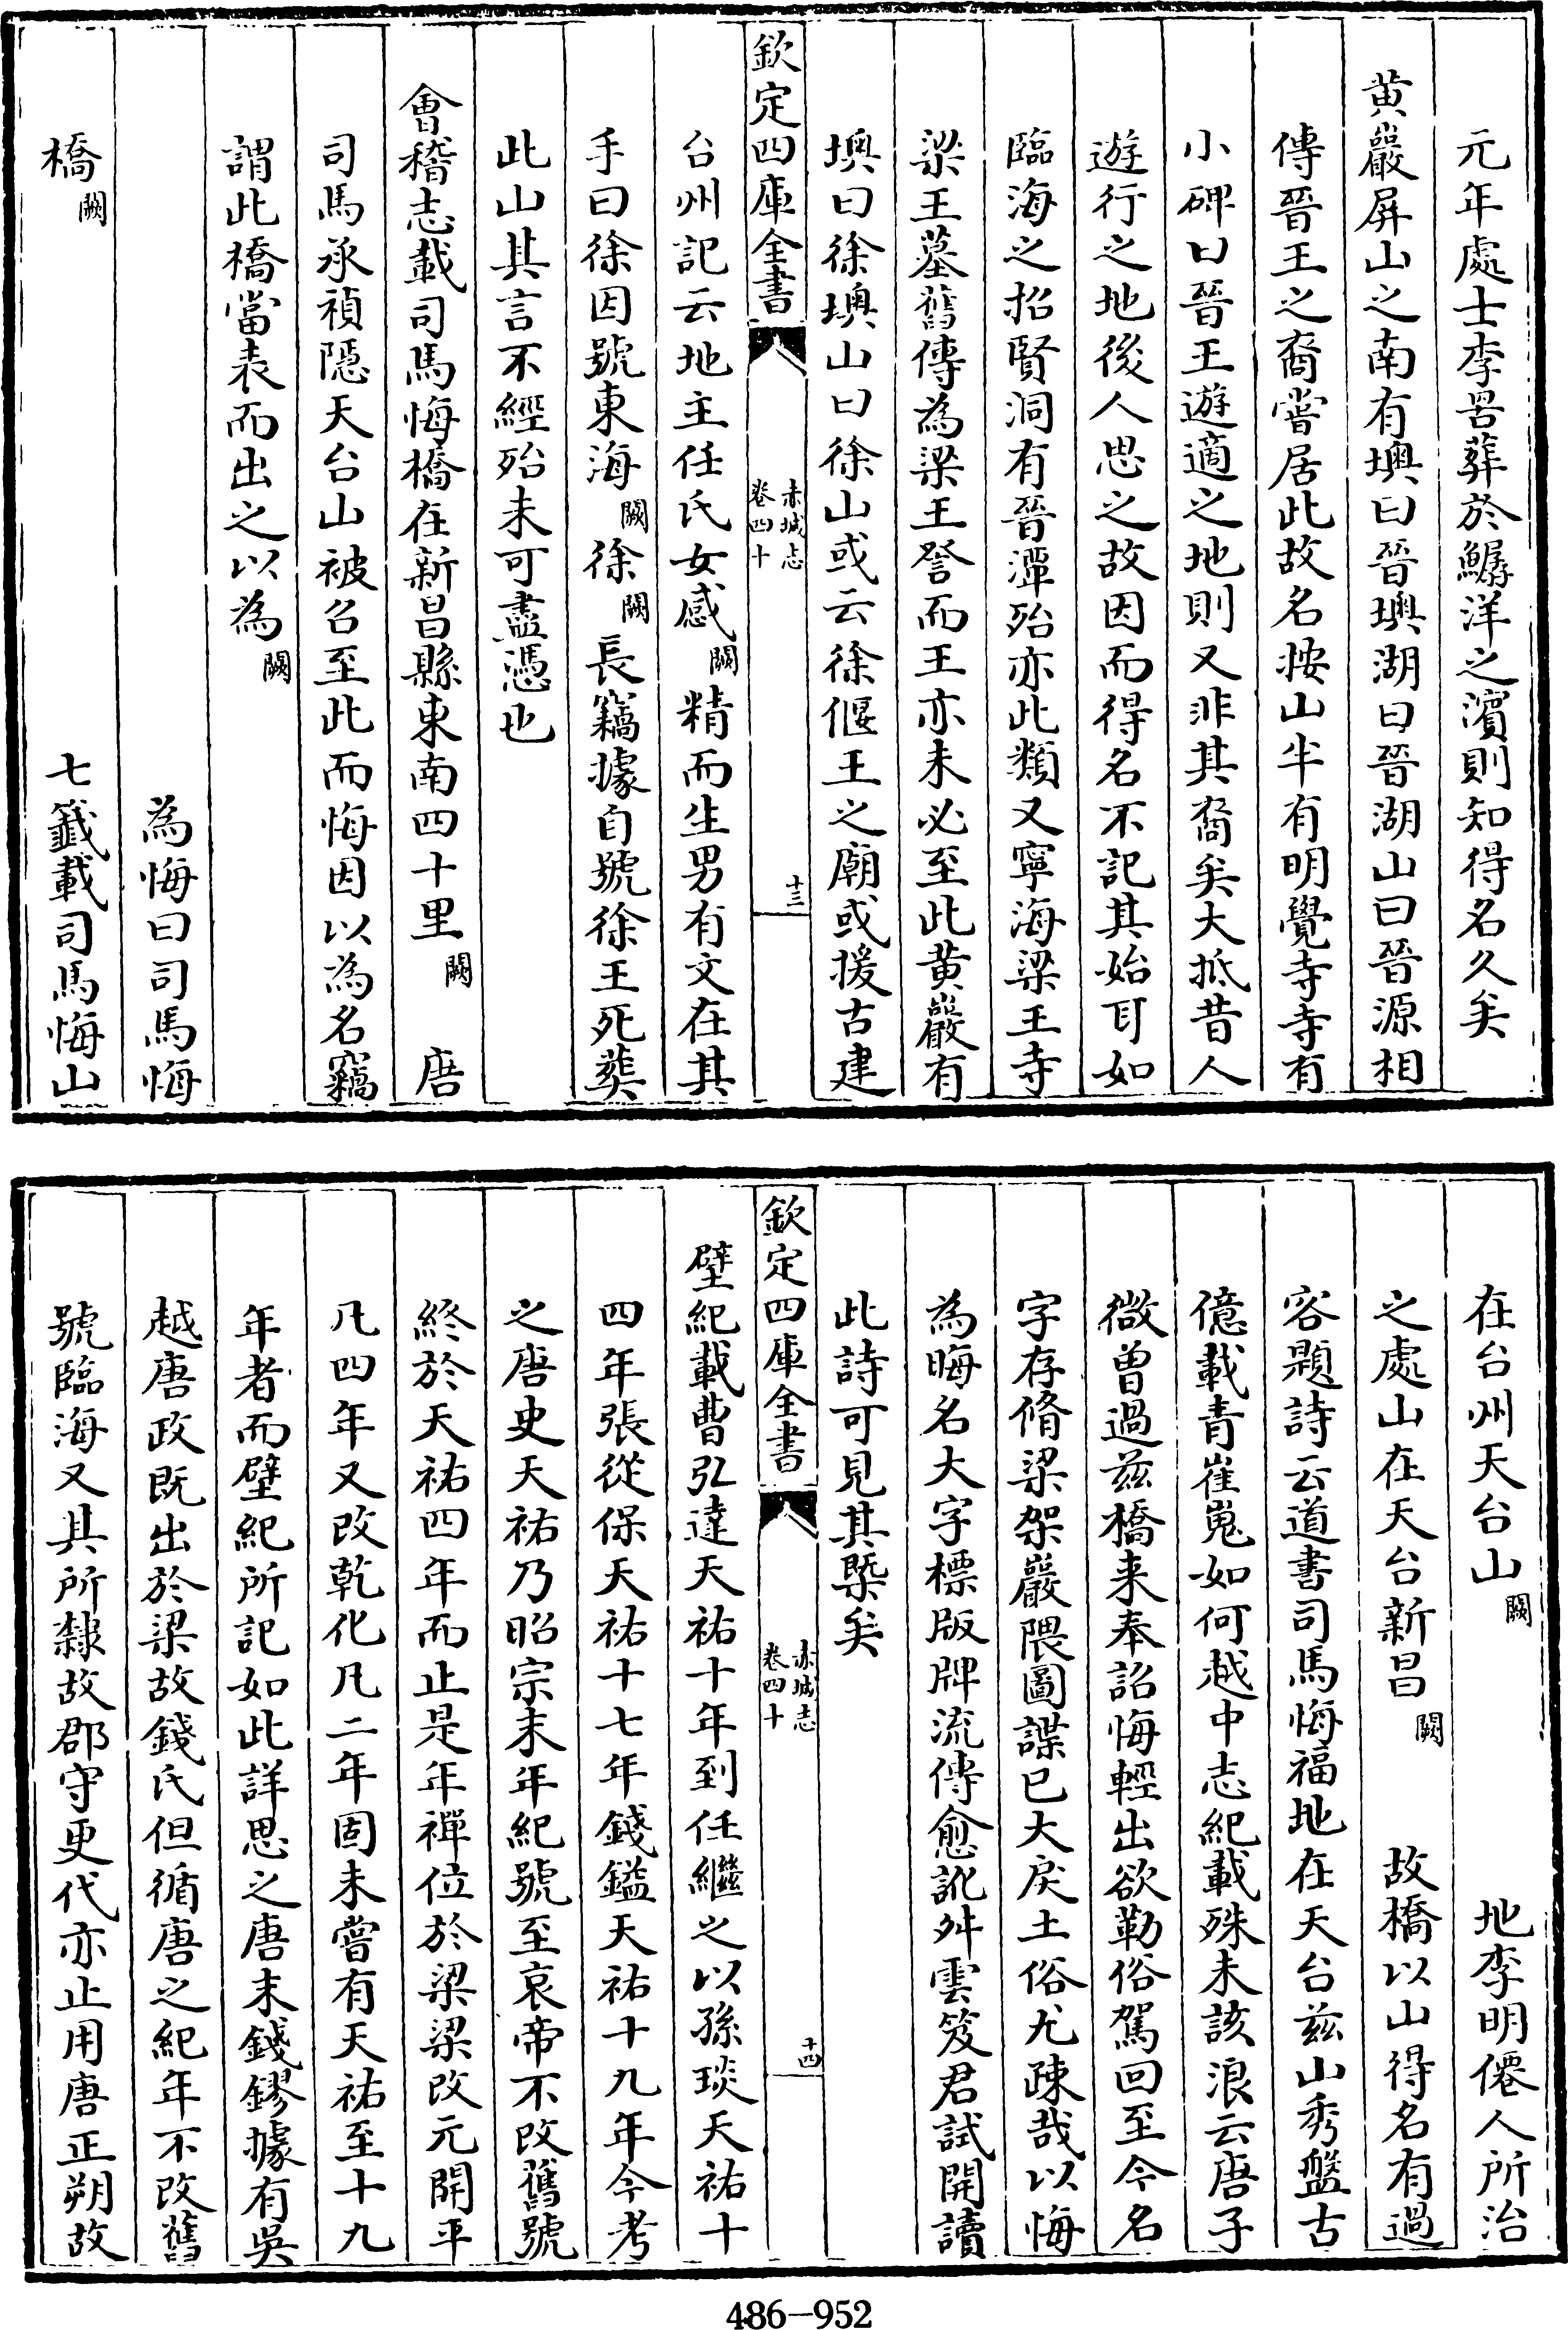 元年處士李㫑葬於鱘洋之濱則知得名久矣
黄巖屏山之南有墺曰晉墺湖曰晉湖山曰晉源相
傳晉王之裔嘗居此故名按山半有明覺寺寺有
小碑曰晉王遊適之地則又非其裔矣大抵昔人
遊行之地後人思之故因而得名不記其始耳如
臨海之招賢洞有晉潭殆亦此類又寧海梁王寺
梁王墓舊傳為梁王詧而王亦未必至此黄巖有
墺曰徐墺山曰徐山或云徐偃王之廟或援古建
欽定四庫全書
赤城志
卷四十
十三
台州記云地主任氏女感闕精而生男有文在其
手曰徐因號東海闕徐闕長竊據自號徐王死葬
此山其言不經殆未可盡憑也
會稽志載司馬悔橋在新昌縣東南四十里闕 唐
司馬承禎隱天台山被召至此而悔因以為名竊
謂此橋當表而出之以為闕
為悔曰司馬悔
橋闕 七籤載司馬悔山
在台州天台山闕 地李明僊人所治
之處山在天台新昌闕 故橋以山得名有過
客題詩云道書司馬悔福地在天台兹山秀盤古
億載青崔嵬如何越中志紀載殊未該浪云唐子
微曾過兹橋来奉詔悔輕出欲勒俗駕回至今名
字存脩梁架巖隈圖諜已大戾土俗尤疎哉以悔
為晦名大字標版牌流傳愈訛舛雲笈君試開讀
此詩可見其槩矣
欽定四庫全書
赤城志
卷四十
十四
壁紀載曹弘達天祐十年到任繼之以孫琰天祐十
四年張從保天祐十七年錢鎰天祐十九年今考
之唐史天祐乃昭宗末年紀號至哀帝不改舊號
終於天祐四年而止是年禪位於梁梁改元開平
凡四年又改乾化凡二年固未嘗有天祐至十九
年者而壁紀所記如此詳思之唐末錢鏐據有吳
越唐政既出於梁故錢氏但循唐之紀年不改舊
號臨海又其所隸故郡守更代亦止用唐正朔故
486-952